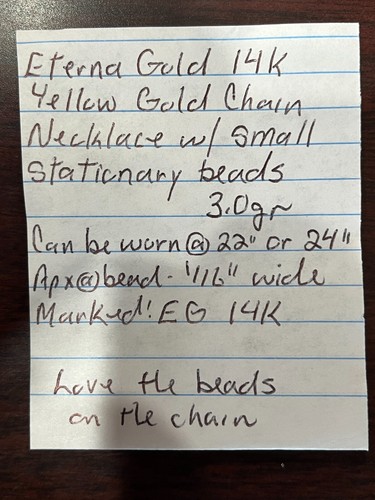 Eterna Gold 14K
Yellow Gold Chain
Necklace w/ small
Stationary beads
3.0gr
Can be worn @ 22" or 24"
Apx @ bead - "1/16" wide
Marked: EG 14K
Love the beads
on the chain